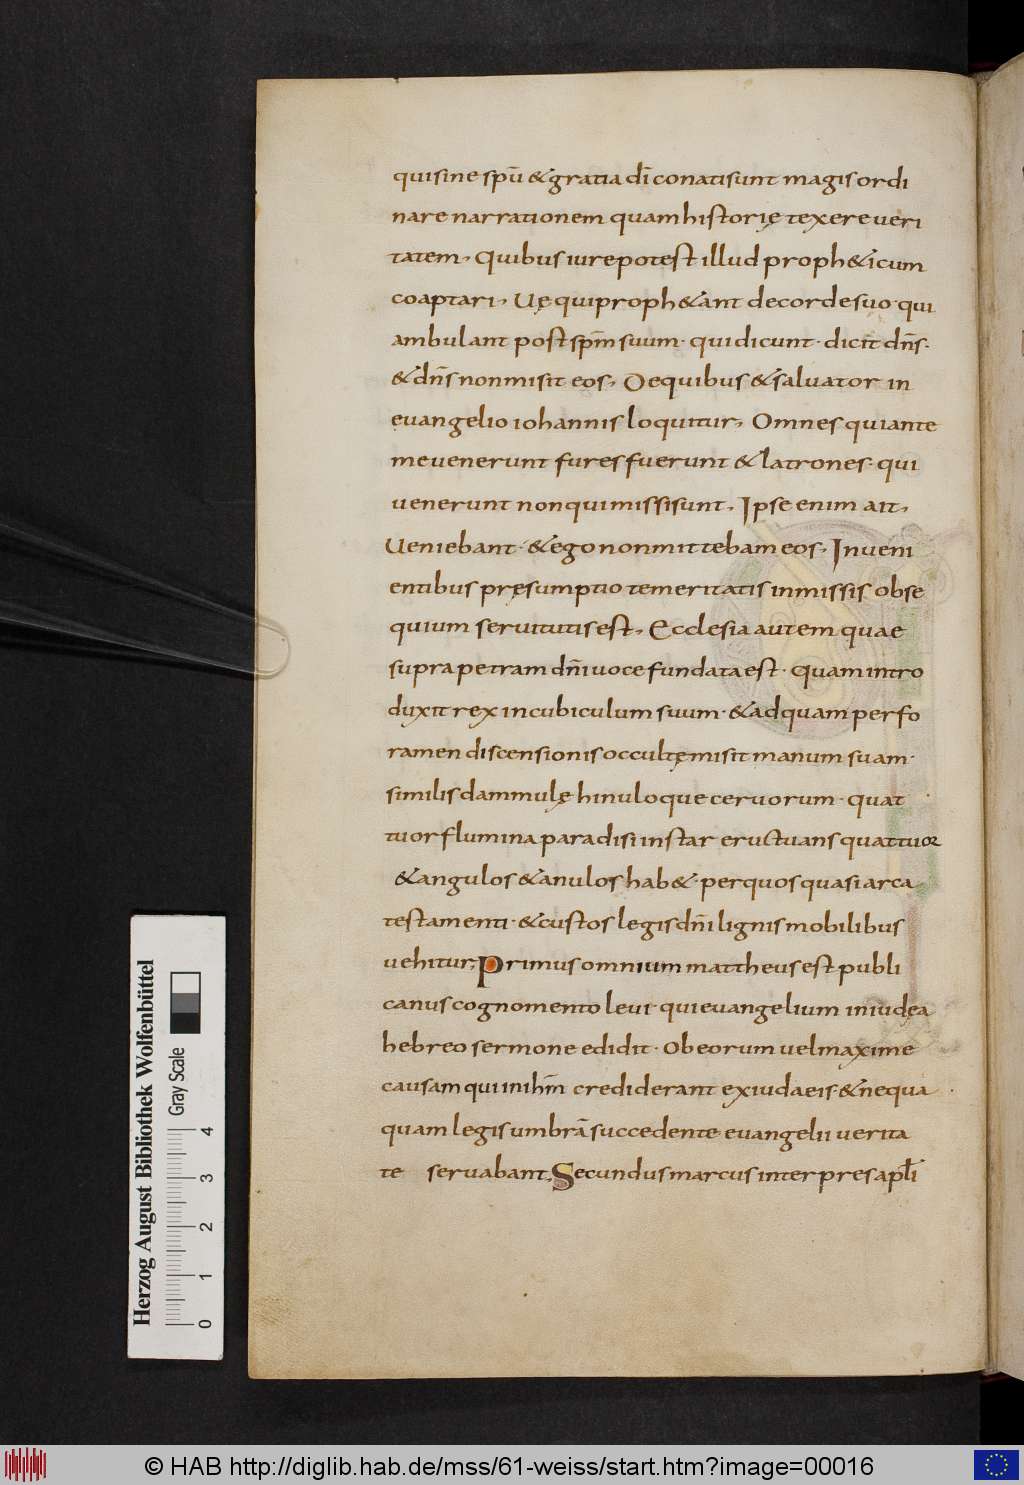 qui sine spū & gratia dī conati sunt magis ordi
nare narrationem quam historię texere veri
tatem, Quibus iure potest illud proph&icum
coaptari, Uę qui proph&ant de corde suo· qui
ambulant post spm̄ suum· qui dicunt· dicit dn̄s·
& dn̄s non misit eos, De quibus & salvator in
evangelio iohannis loquitur, Omnes qui ante
me venerunt fures fuerunt & latrones· qui
venerunt non qui missi sunt, Ipse enim ait,
Veniebant· & ego non mittebam eos, In veni
entibus pręsumptio temeritatis in missis obse
quium servitutis est, Ecclesia autem quae
supra petram dn̄i voce fundata est· quam intro
duxit rex in cubiculum suum· & ad quam per fo
ramen discensionis occultę misit manum suam·
similis dammulę hinuloque cervorum· quat
tuor flumina paradisi instar eructuans quattuor
& angulos & anulos hab&· per quos quasi arca
testamenti· & custos legis dn̄i lignis mobilibus
vehitur, Primus omnium mattheus est publi
canus cognomento levi· qui evangelium in iudęa
hebreo sermone edidit· Ob eorum vel maxime
causam qui in ihm̄ crediderant ex iudaeis· & nequa
quam legis umbrā succedente evangelii verita
te servabant, Secundus marcus interpres apłi
Herzog August Bibliothek Wolfenbüttel
Gray Scale
0 1 2 3 4
© HAB http://diglib.hab.de/mss/61-weiss/start.htm?image=00016